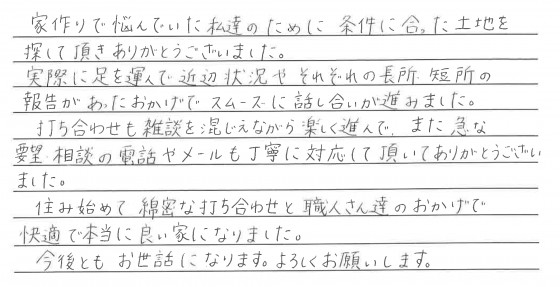 家作りで悩んでいた私達のために 条件に合った土地を
探して頂きありがとうございました。
実際に足を運んで近辺状況や それぞれの長所、短所の
報告があったおかげで スムーズに話し合いが進みました。
打ち合わせも雑談を混じえながら楽しく進んで、また急な
要望、相談の電話やメールも丁寧に対応して頂いてありがとうござい
ました。
住み始めて 綿密な打ち合わせと職人さん達のおかげで
快適で本当に良い家になりました。
今後とも お世話になります。よろしくお願いします。